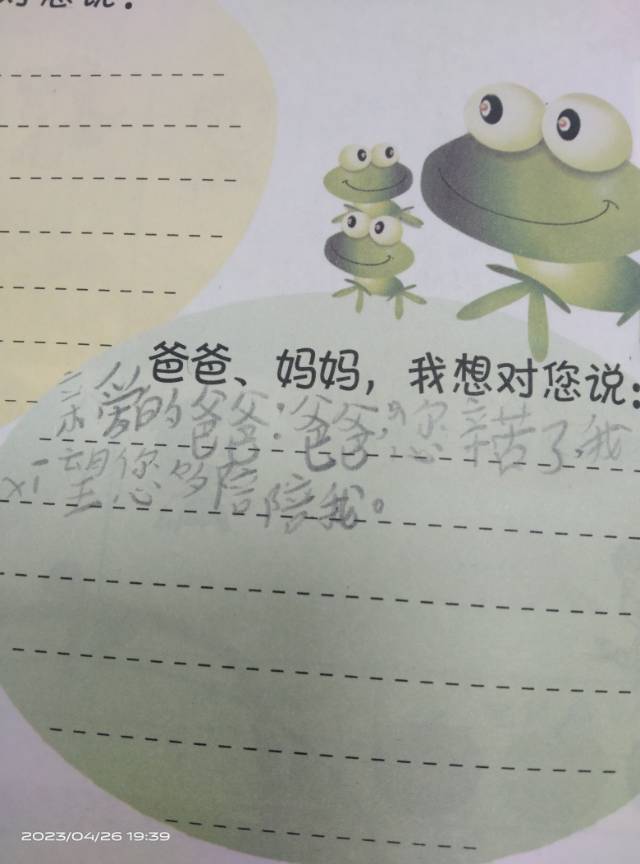 对您说：
爸爸、妈妈，我想对您说：
亲爱的爸爸：爸爸，您辛苦了，我
希望您多陪陪我。
2023/04/26 19:39